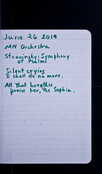 June 26 2019
MN Orchestra
Stravinsky: Symphony
of Psalms
Silent crying
I shall do no more.
All that breathes,
praise her, the Sophia.